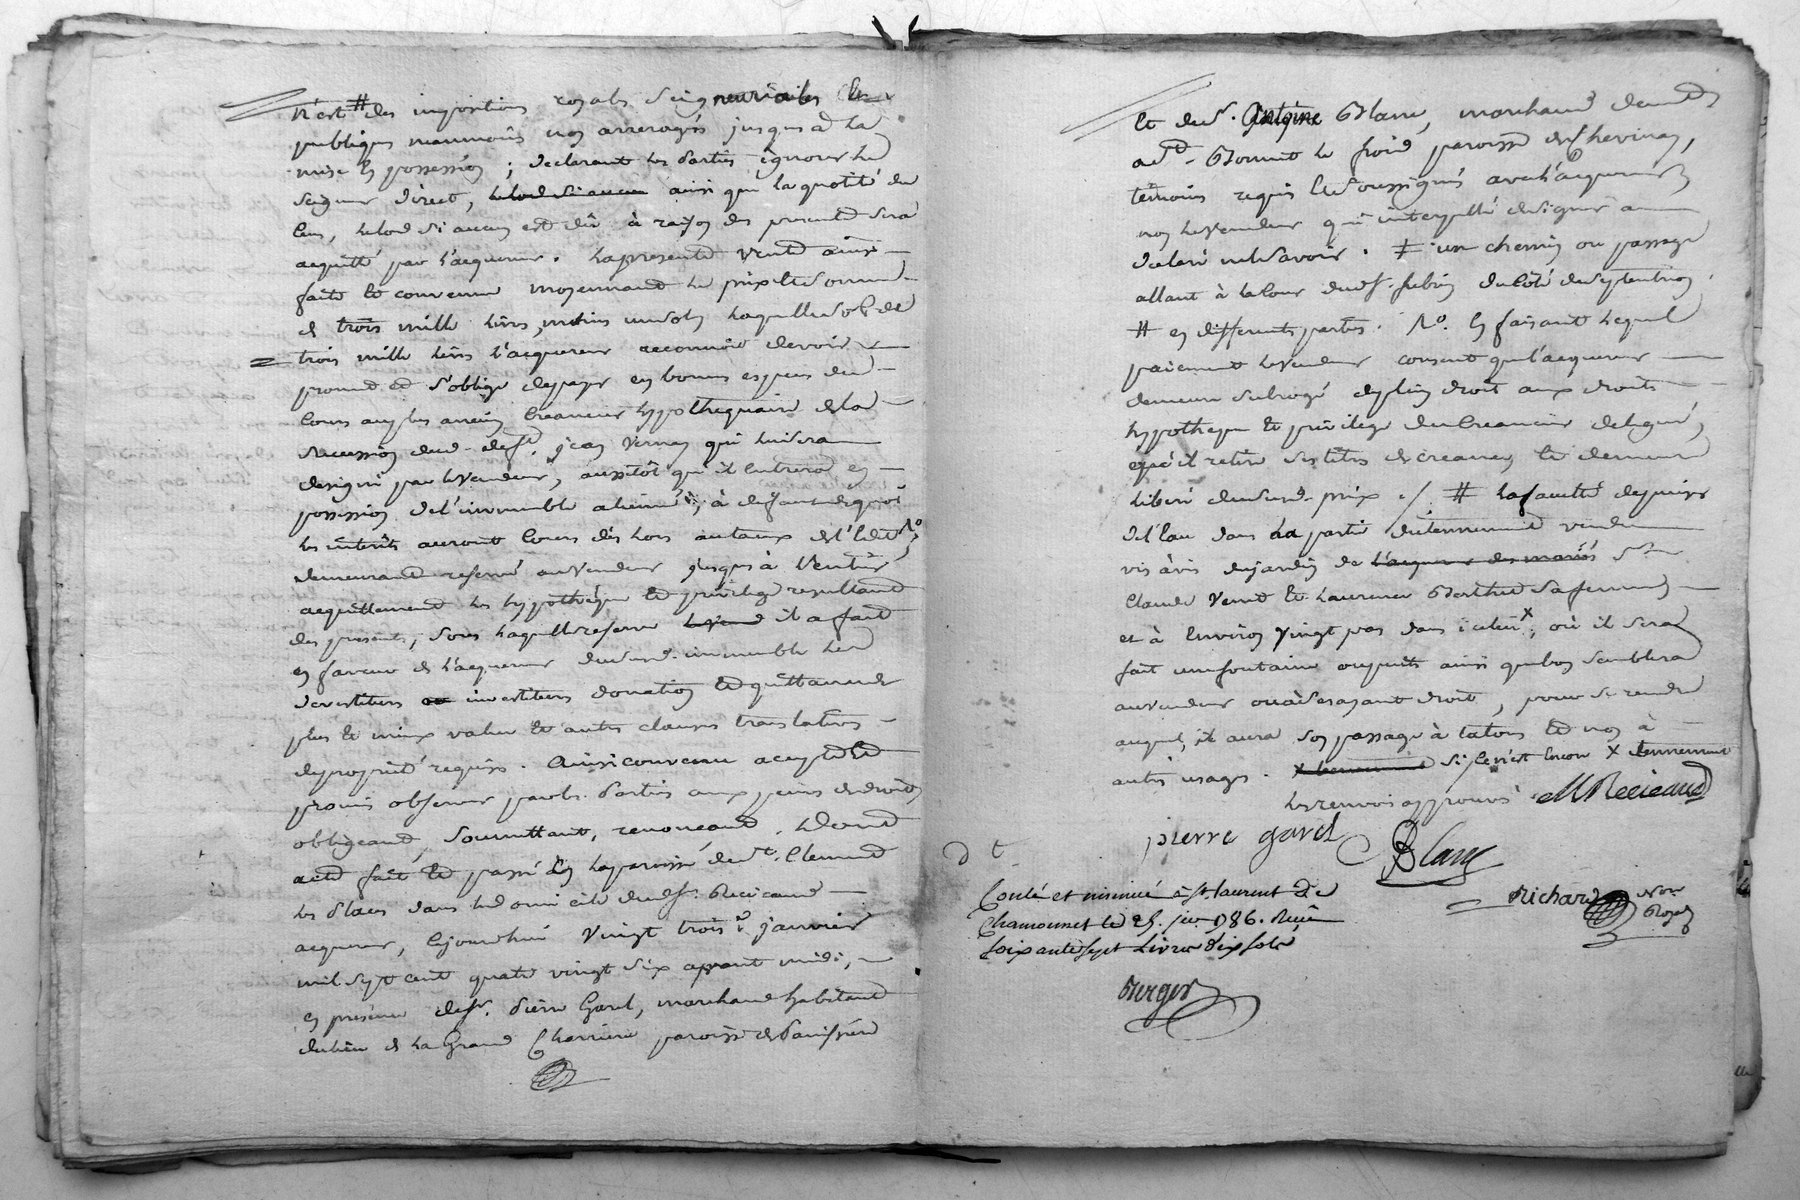 n'est # des impositions royales Seigneuriales et
publiques neanmoins non arreragés jusques à la
mise en possession ; declarant les parties ignorer le
seigneur direct, ainsi que la quotité du
Cens, le lod si aucun est dû à raison des presentes sera
acquitté par l'acquereur. La presente vente ainsi
faite et convenue moyennant le prix et somme
de trois mille livres, moins un sol, laquelle so(e) de
trois mille livres l'acquereur reconnoit devoir
promet et s'oblige de payer en bonnes especes du
Cours au plus ancien Creancier hypothequaire de la
Succession dud. deft. jean Vernay qui lui sera
designé par le Vendeur, aussitôt qu'il entrera en
possession de l'immeuble aliené, à deffaut de quoi
les interêts auront Cours dès lors au taux de l'Edit No,
demeurant reservé au Vendeur jusques à l'entier
acquittement les hypothèque et privilege resultant
des presentes, sous laquelle reserve il a fait
en faveur de l'acquereur dud. immeuble les
devestitures investitures donation et quittance de
plus et mieux value et autres clauses translatives
de proprieté requises. Ainsi convenu accepté et
promis observer par les parties aux peines de droit,
obligeant, soumettant, renonceant, &
acte fait et passé en la paroisse de St. Clement
les places dans le domicile dud. sr. Recicaud
acquereur, cejourdhui vingt trois janvier
mil sept cent quatre vingt six avant midi,
en presence de sr. Pierre Garel, marchand habitant
du lieu de la Grand Charriere paroisse de Panissiere
Et de sr. Antoine Blanc, marchand demt.
aud. Bonnet le froid paroisse de Chevinay,
temoins requis et soussignés avec l'acquereur
non le Vendeur qui interpellé de signer a
declaré ne le savoir. ǂ un chemin ou passage
allant à la Cour dud. sr. du côté de septentrion
# en differentes parties. No. En faisant lequel
paiement le Vendeur consent que l'acquereur
demeure subrogé de plein droit aux droits
hypotheque et privilege du Creancier delegué,
qu'il retire ses titres de creance et demeure
liberé dud. prix ./. # la faculté de puiser
de l'eau dans la partie du tennement vendu
vis à vis du jardin de l'acquereur des mariés
Claude Venet et Laurence Berthet sa femme
et à Environ vingt pas dans icelui x, où il sera
fait une fontaine ou puits ainsi que bon semblera
au vendeur ou à ses ayant droit, pour se rendre
auquel, il aura son passage à talons et non à
autres usages. x tennement si ce n'est encore x tennement
les renvois approuvés. M Recicaud
pierre garel Blanc
Richard Nore
Royal
Conlé et insinué à St. laurent De
Chamousset le 25. jer. 1786. Reçu
soixante sept Livres dix sols
Berger